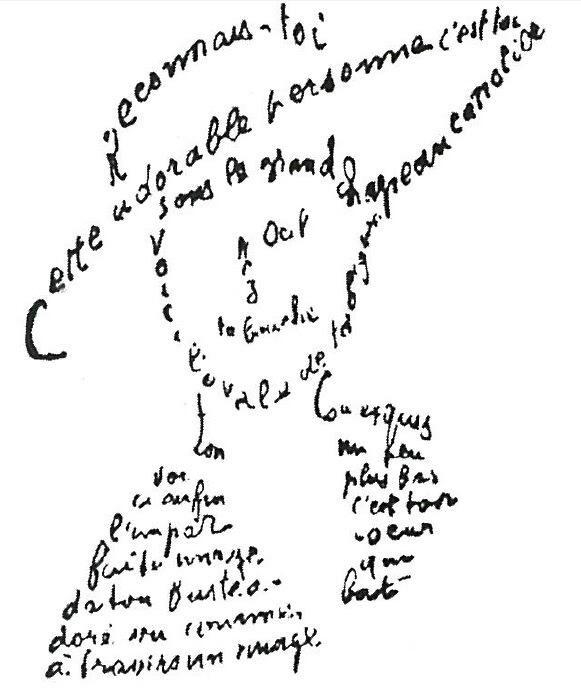 Reconnais-toi
Cette adorable personne c'est toi
Sous le grand chapeau canotier
Oeil
Nez
la bouche
Voici l'ovale de ta figure
Ton
Cou exquis
Voi
ci enfin
l'impar
faite image
de ton buste a
doré vu comme
à travers un nuage
un peu
plus bas
c'est ton
coeur
qui
bat